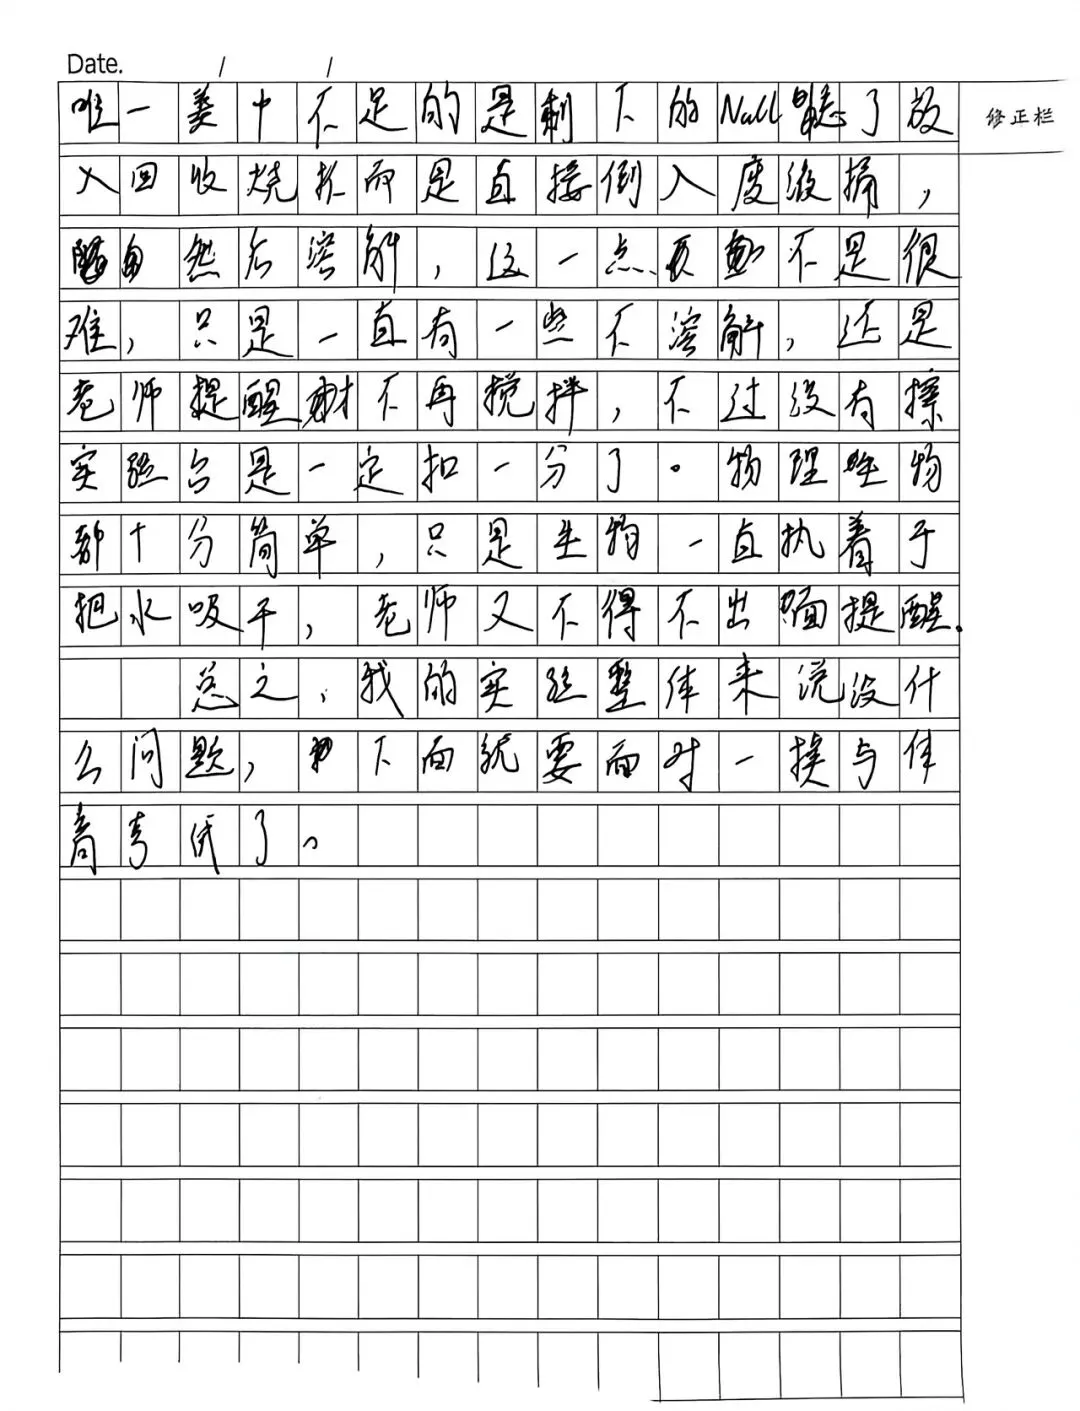 Date. / /
修正栏
唯一美中不足的是剩下的NaCl忘了放
入回收烧杯而是直接倒入废液桶,
然后溶解,这一点真不是很
难,只是一直有一些不溶解,还是
老师提醒才不再搅拌,不过没有擦
实验台是一定扣一分了。物理生物
都十分简单,只是生物一直执着于
把水吸干,老师又不得不出面提醒.
总之,我的实验整体来说没什
么问题,下面就要面对一模与体
育考试了。